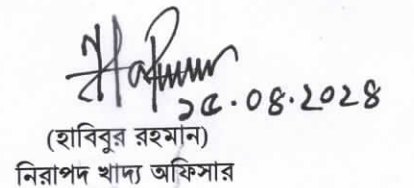 ২৫.০৪.২০২৪
(হাবিবুর রহমান)
নিরাপদ খাদ্য অফিসার